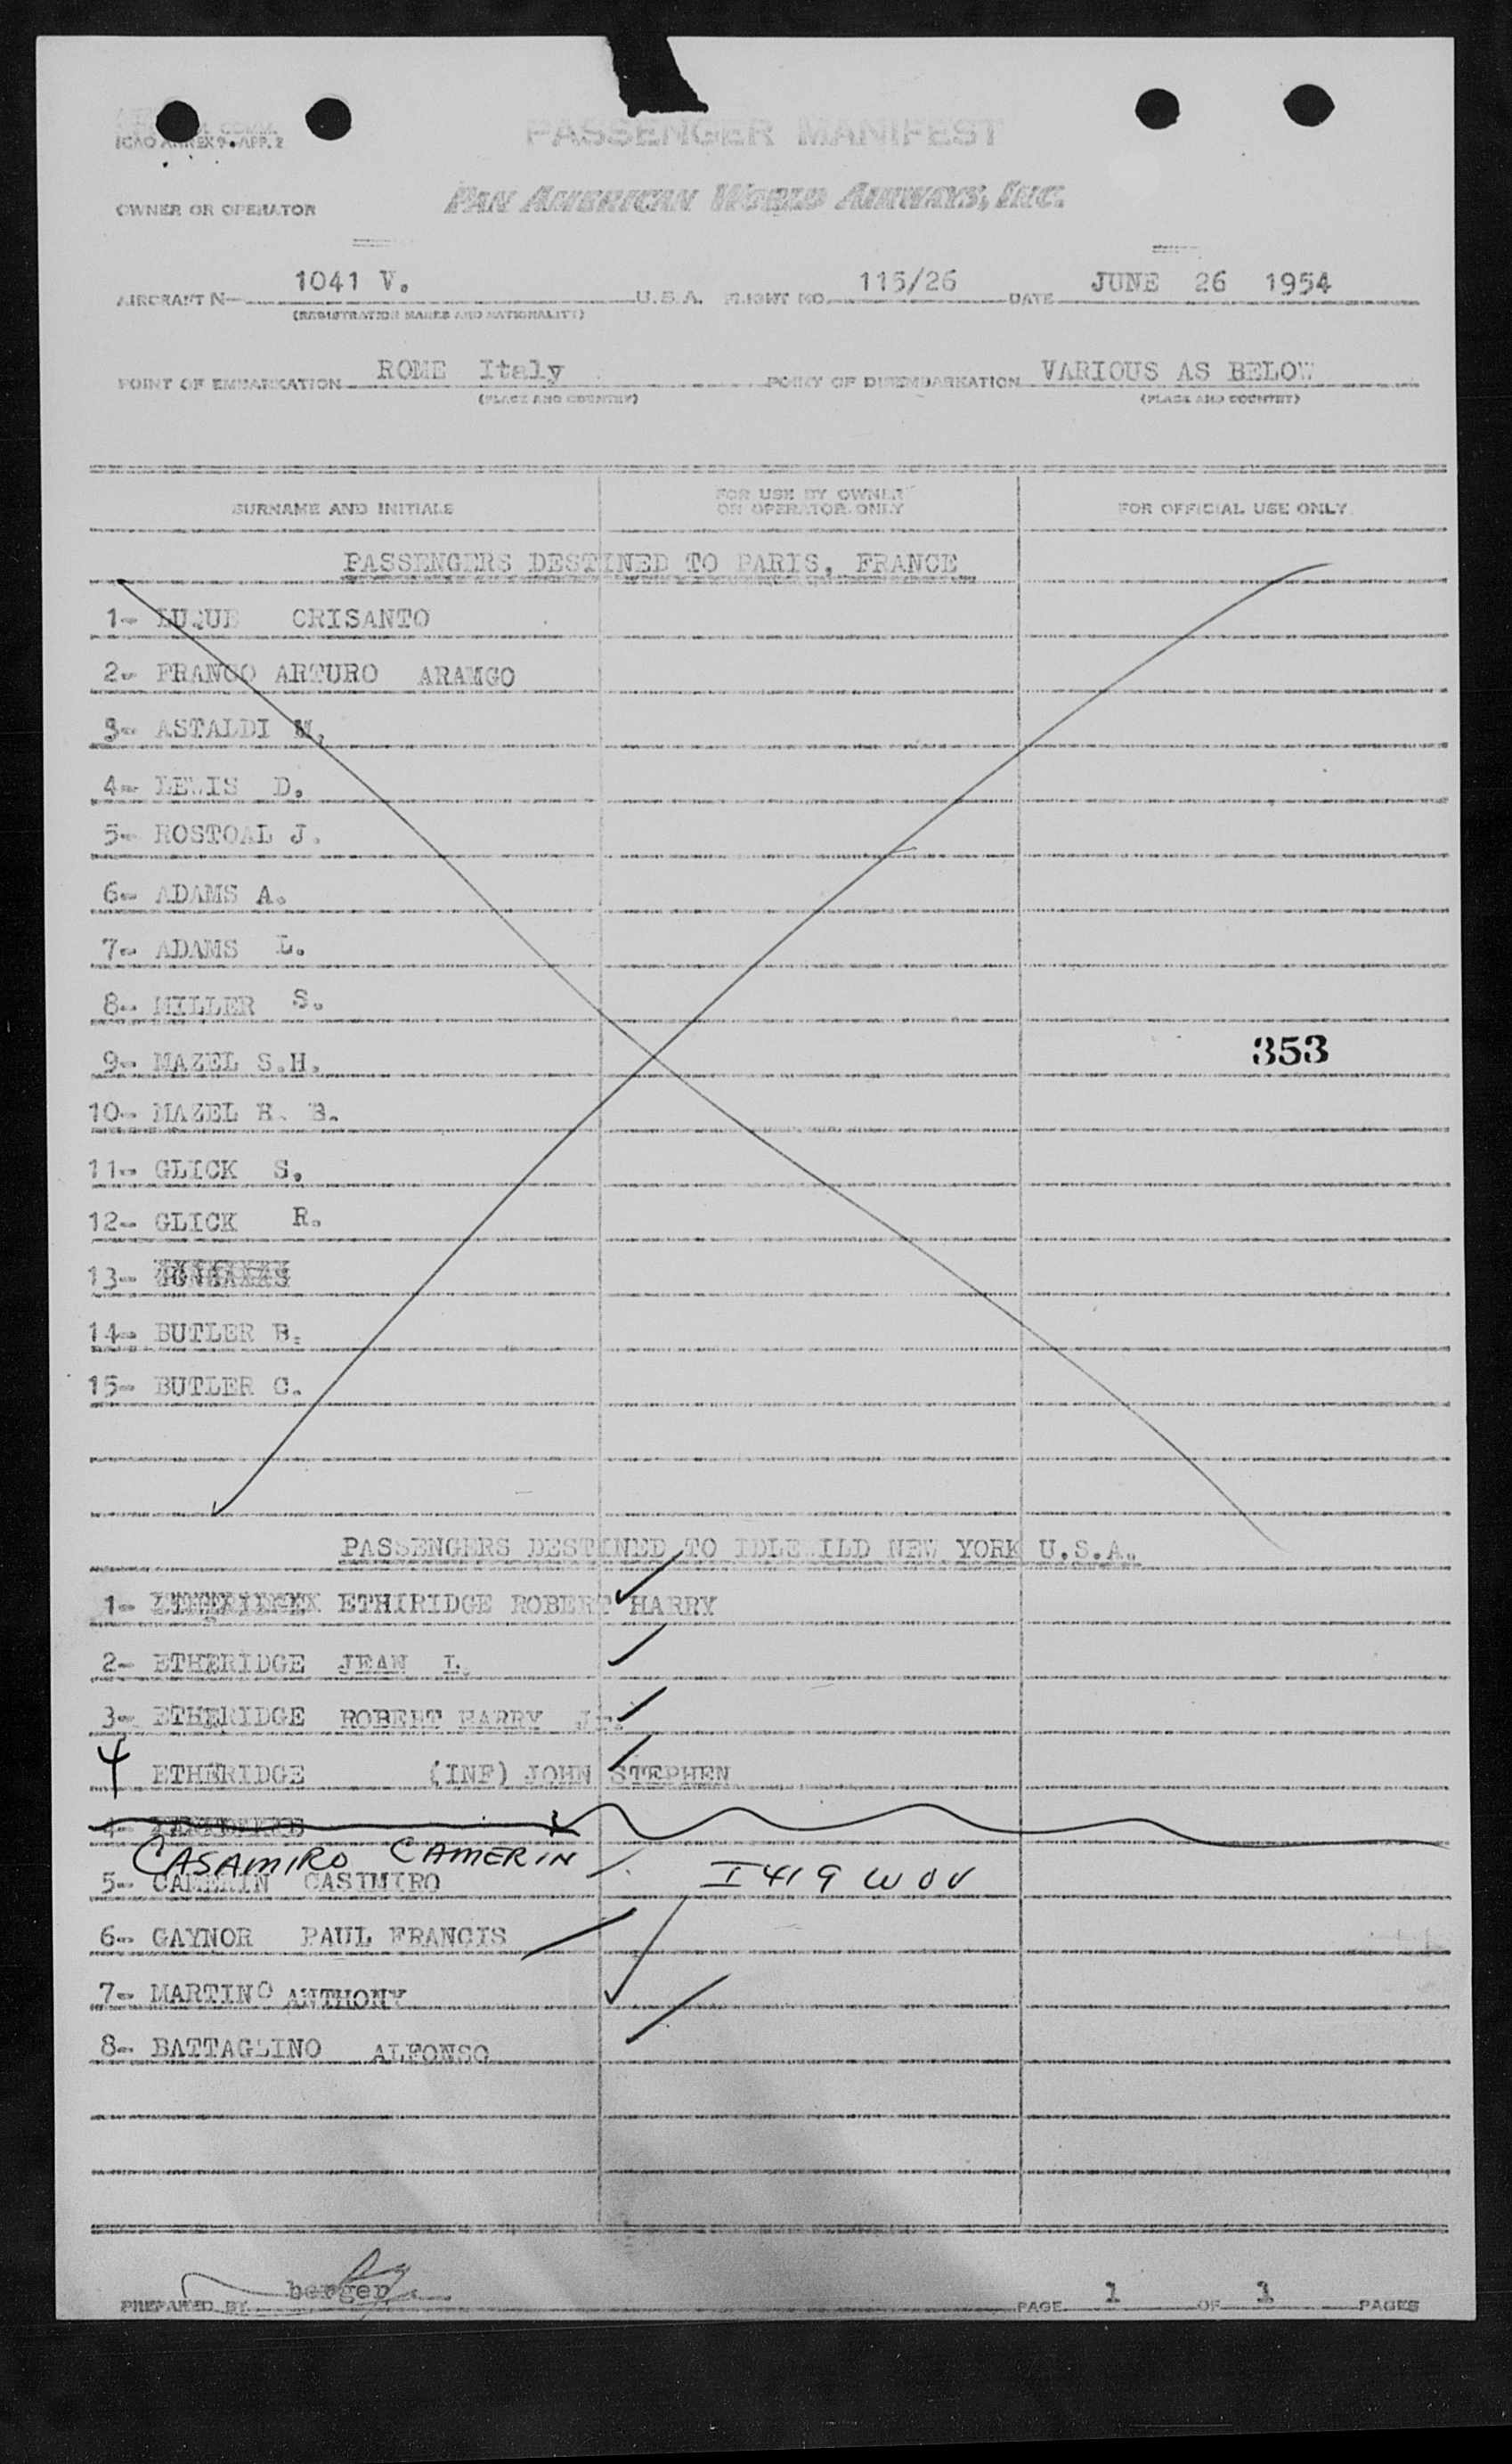 ICAO ANNEX 9. APP. 2
PASSENGER MANIFEST
OWNER OR OPERATOR
PAN AMERICAN WORLD AIRWAYS, INC.
AIRCRAFT N 1041 V. U.S.A. FLIGHT NO. 115/26 DATE JUNE 26 1954
(REGISTRATION MARKS AND NATIONALITY)
POINT OF EMBARKATION ROME Italy POINT OF DISEMBARKATION VARIOUS AS BELOW
(PLACE AND COUNTRY) (PLACE AND COUNTRY)
SURNAME AND INITIALS FOR USE BY OWNER OR OPERATOR ONLY FOR OFFICIAL USE ONLY
PASSENGERS DESTINED TO PARIS, FRANCE
1- LUQUE CRISANTO
2- FRANCO ARTURO ARAMGO
3- ASTALDI M.
4- LEWIS D.
5- ROSTOAL J.
6- ADAMS A.
7- ADAMS L.
8- MILLER S.
353
9- MAZEL S.H.
10- MAZEL R. B.
11- GLICK S.
12- GLICK R.
13-
14- BUTLER B.
15- BUTLER C.
PASSENGERS DESTINED TO IDLEWILD NEW YORK U.S.A.
1- ETHIRIDGE ROBERT HARRY
2- ETHERIDGE JEAN L.
3- ETHERIDGE ROBERT HARRY Jr.
4 ETHERIDGE (INF) JOHN STEPHEN
4-
CASAMIRO CAMERIN
5- CAMERIN CASIMIRO I 419 WOV
6- GAYNOR PAUL FRANCIS
7- MARTINO ANTHONY
8- BATTAGLINO ALFONSO
PREPARED BY berger PAGE 1 OF 1 PAGES